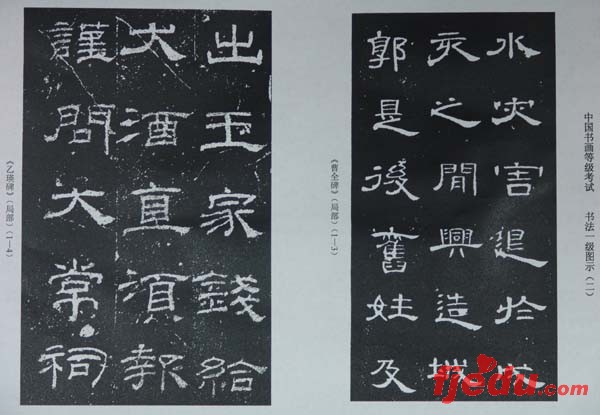 中国书画等级考试 书法一级图示（二）
水灾害退於戌
亥之間興造城
郭是後舊姓及
《曹全碑》（局部）（1—3）
出王家錢給
大酒直須報
謹問大常祠
《乙瑛碑》（局部）（1—4）
fjedu.com